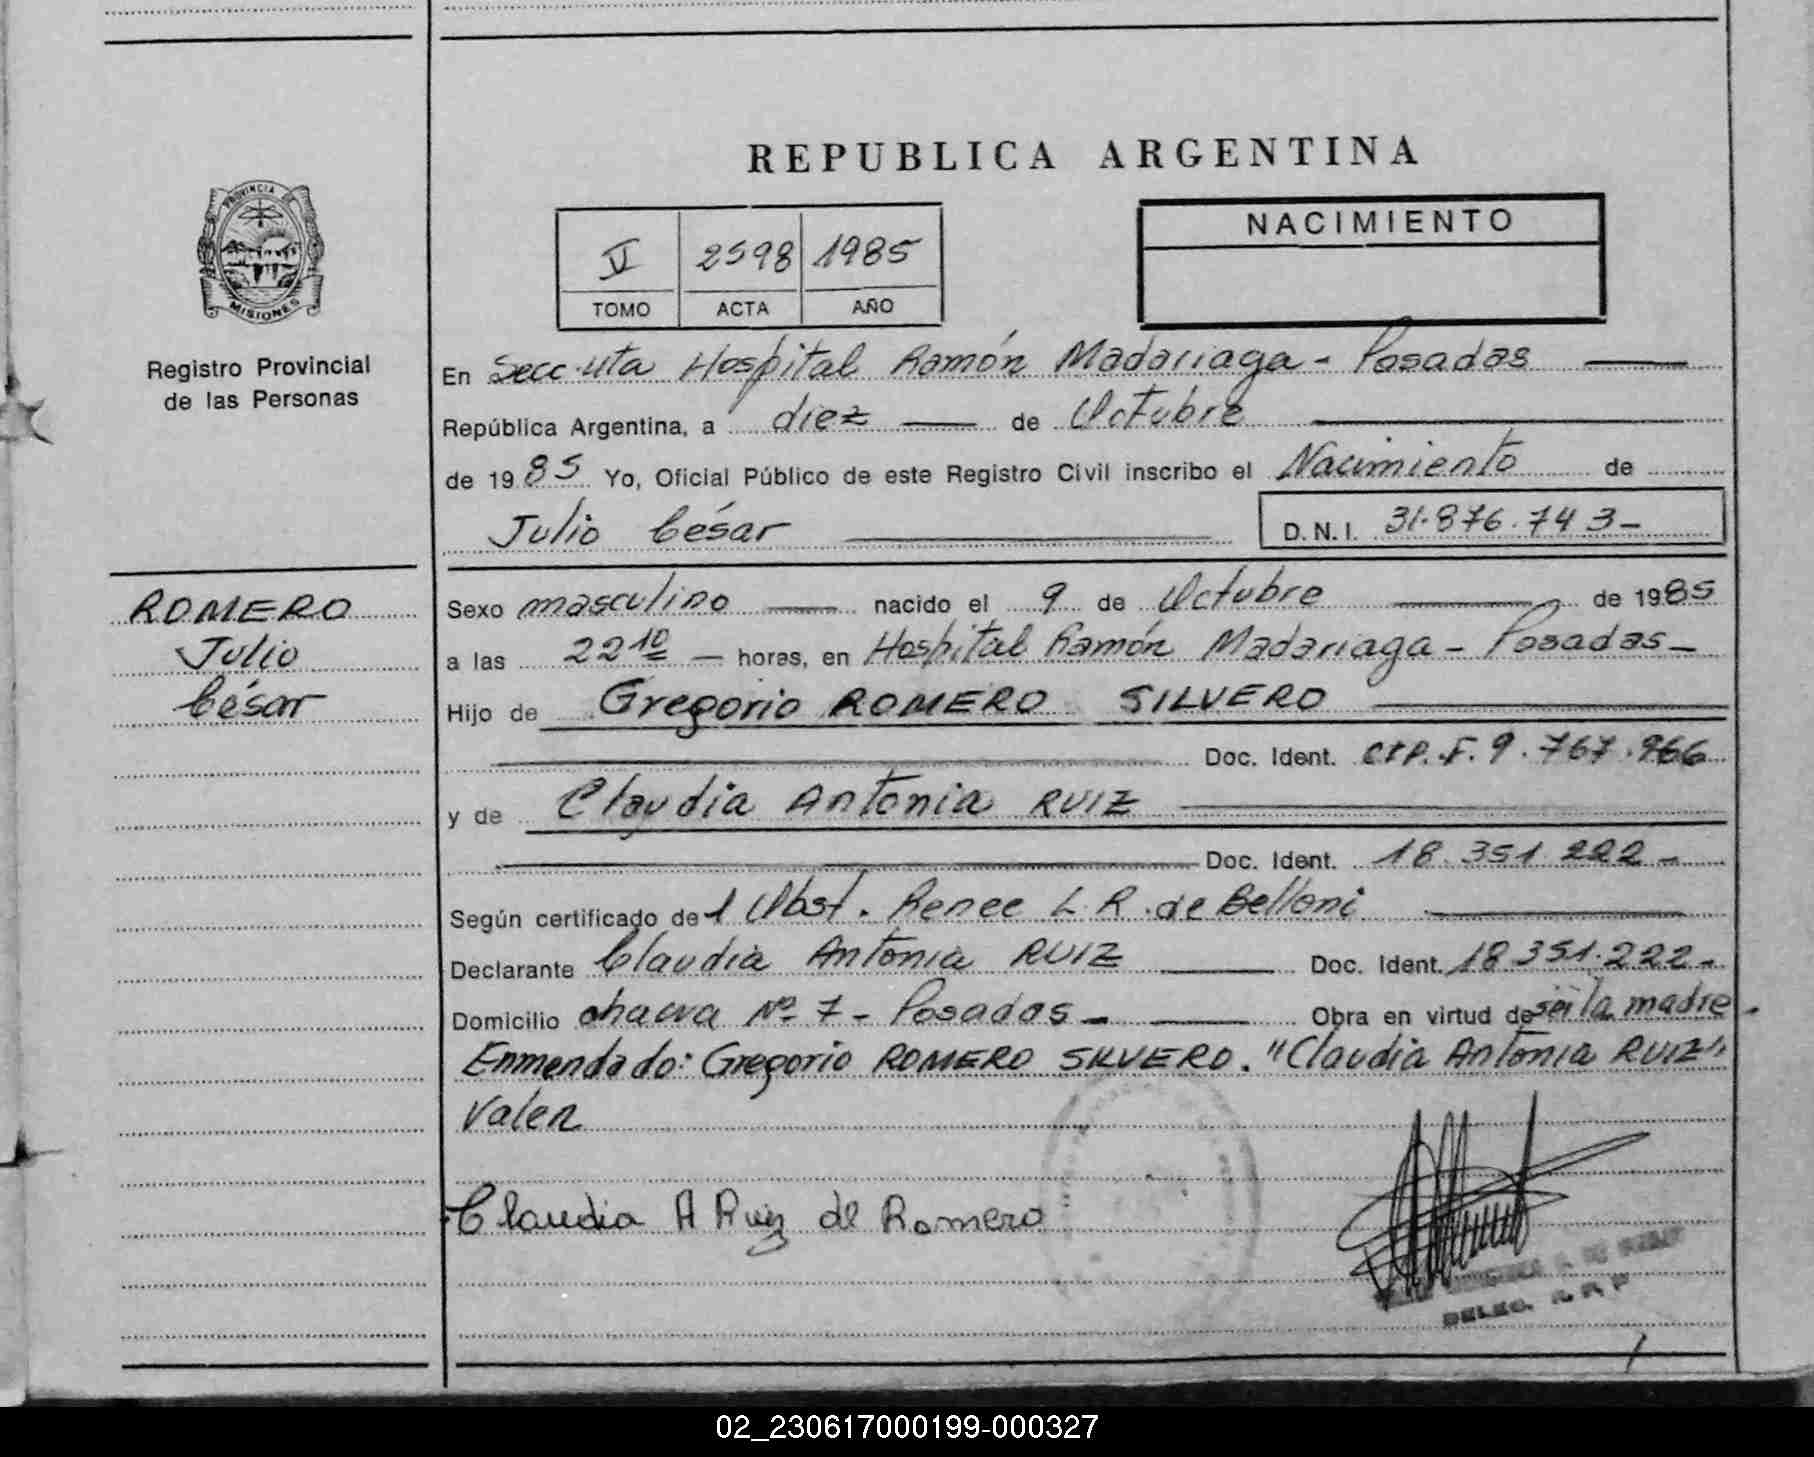 REPUBLICA ARGENTINA
PROVINCIA DE
MISIONES
Registro Provincial
de las Personas
V 2598 1985
TOMO ACTA AÑO
NACIMIENTO
En Secc. 4ta Hospital Ramón Madariaga - Posadas
República Argentina, a diez de Octubre
de 1985 Yo, Oficial Público de este Registro Civil inscribo el Nacimiento de
Julio César D.N.I. 31.876.743-
ROMERO
Julio
César
Sexo masculino nacido el 9 de Octubre de 1985
a las 22 10 - horas, en Hospital Ramón Madariaga - Posadas -
Hijo de Gregorio ROMERO SILVERO
Doc. Ident. F. 9.767.966
y de Claudia Antonia RUIZ
Doc. Ident. 18.351.222-
Según certificado de Obst. Renee L. R. de Belloni
Declarante Claudia Antonia RUIZ Doc. Ident. 18.351.222-
Domicilio chacra Nº 7 - Posadas - Obra en virtud de ser la madre.
Enmendado: Gregorio ROMERO SILVERO. "Claudia Antonia RUIZ"
Valen
Claudia A Ruiz de Romero
DELEG. R. P. P
02_230617000199-000327